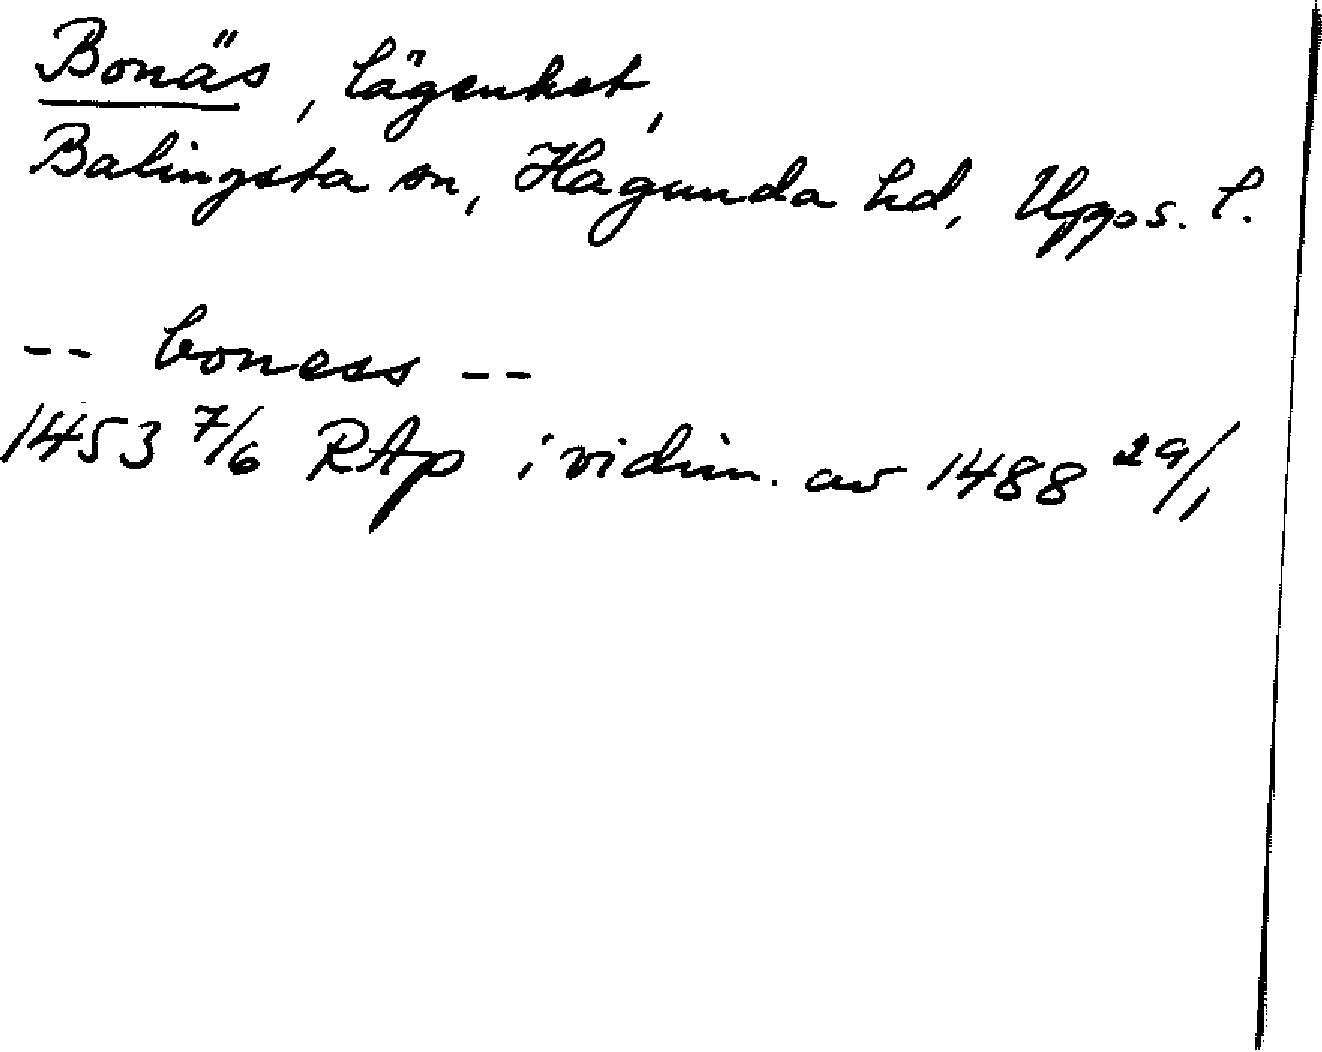 Bonäs, lägenhet,
Balingsta sn, Hagunda hd, Upps. l.
-- boness --
1453 7/6 RAp i vidim. av 1488 29/1